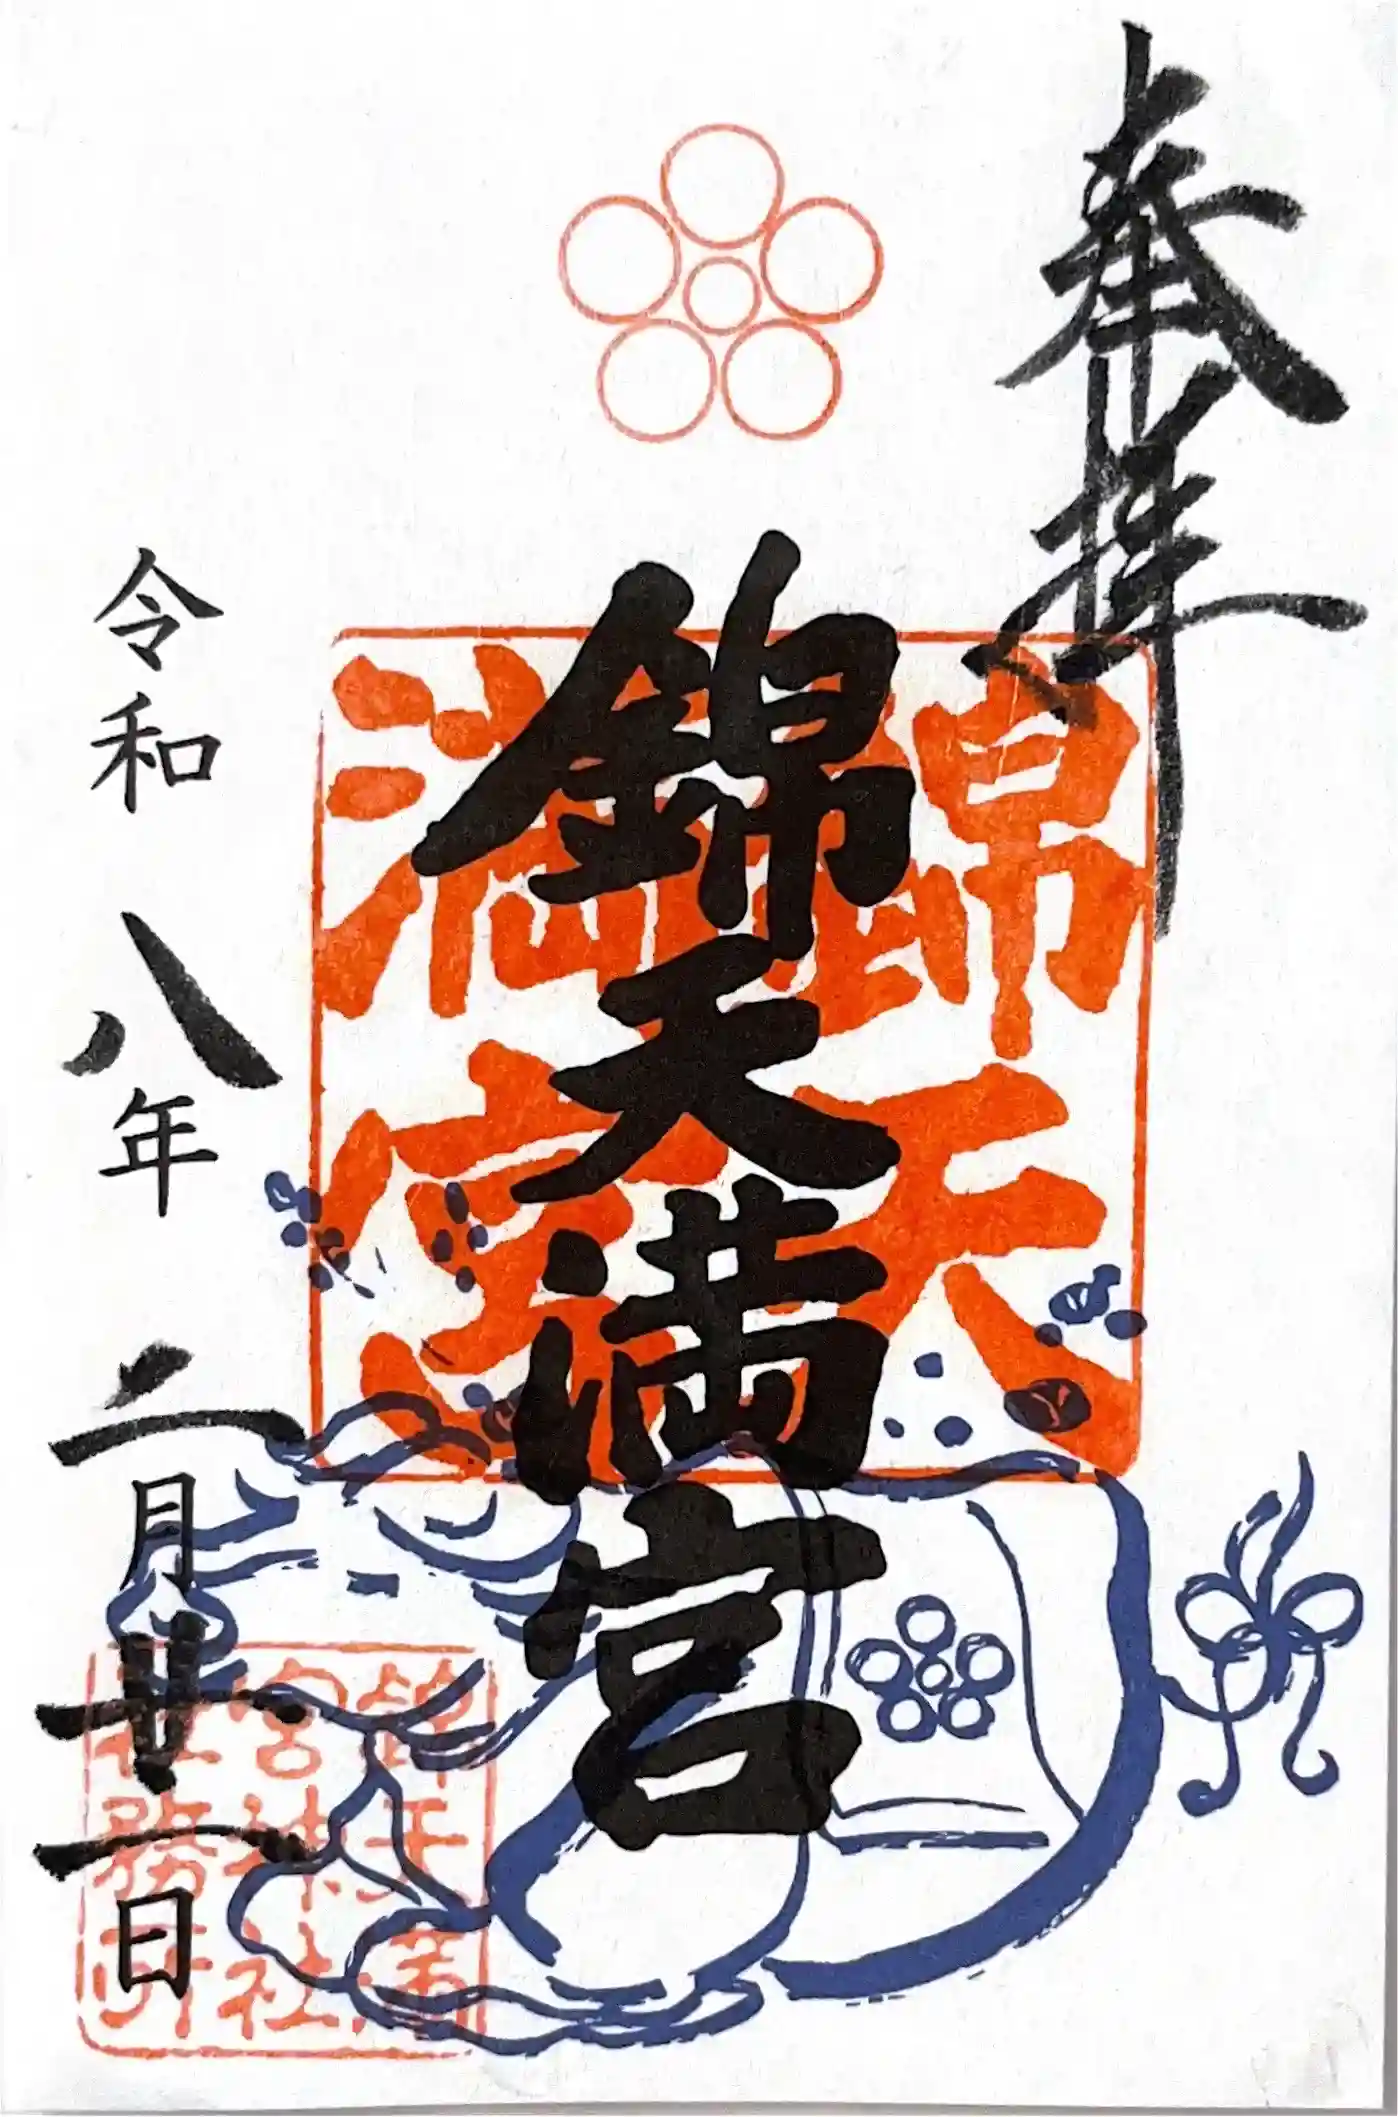 奉拝
錦天満宮
錦天
満宮
令和八年二月廿一日
錦天満
宮神社
社務所